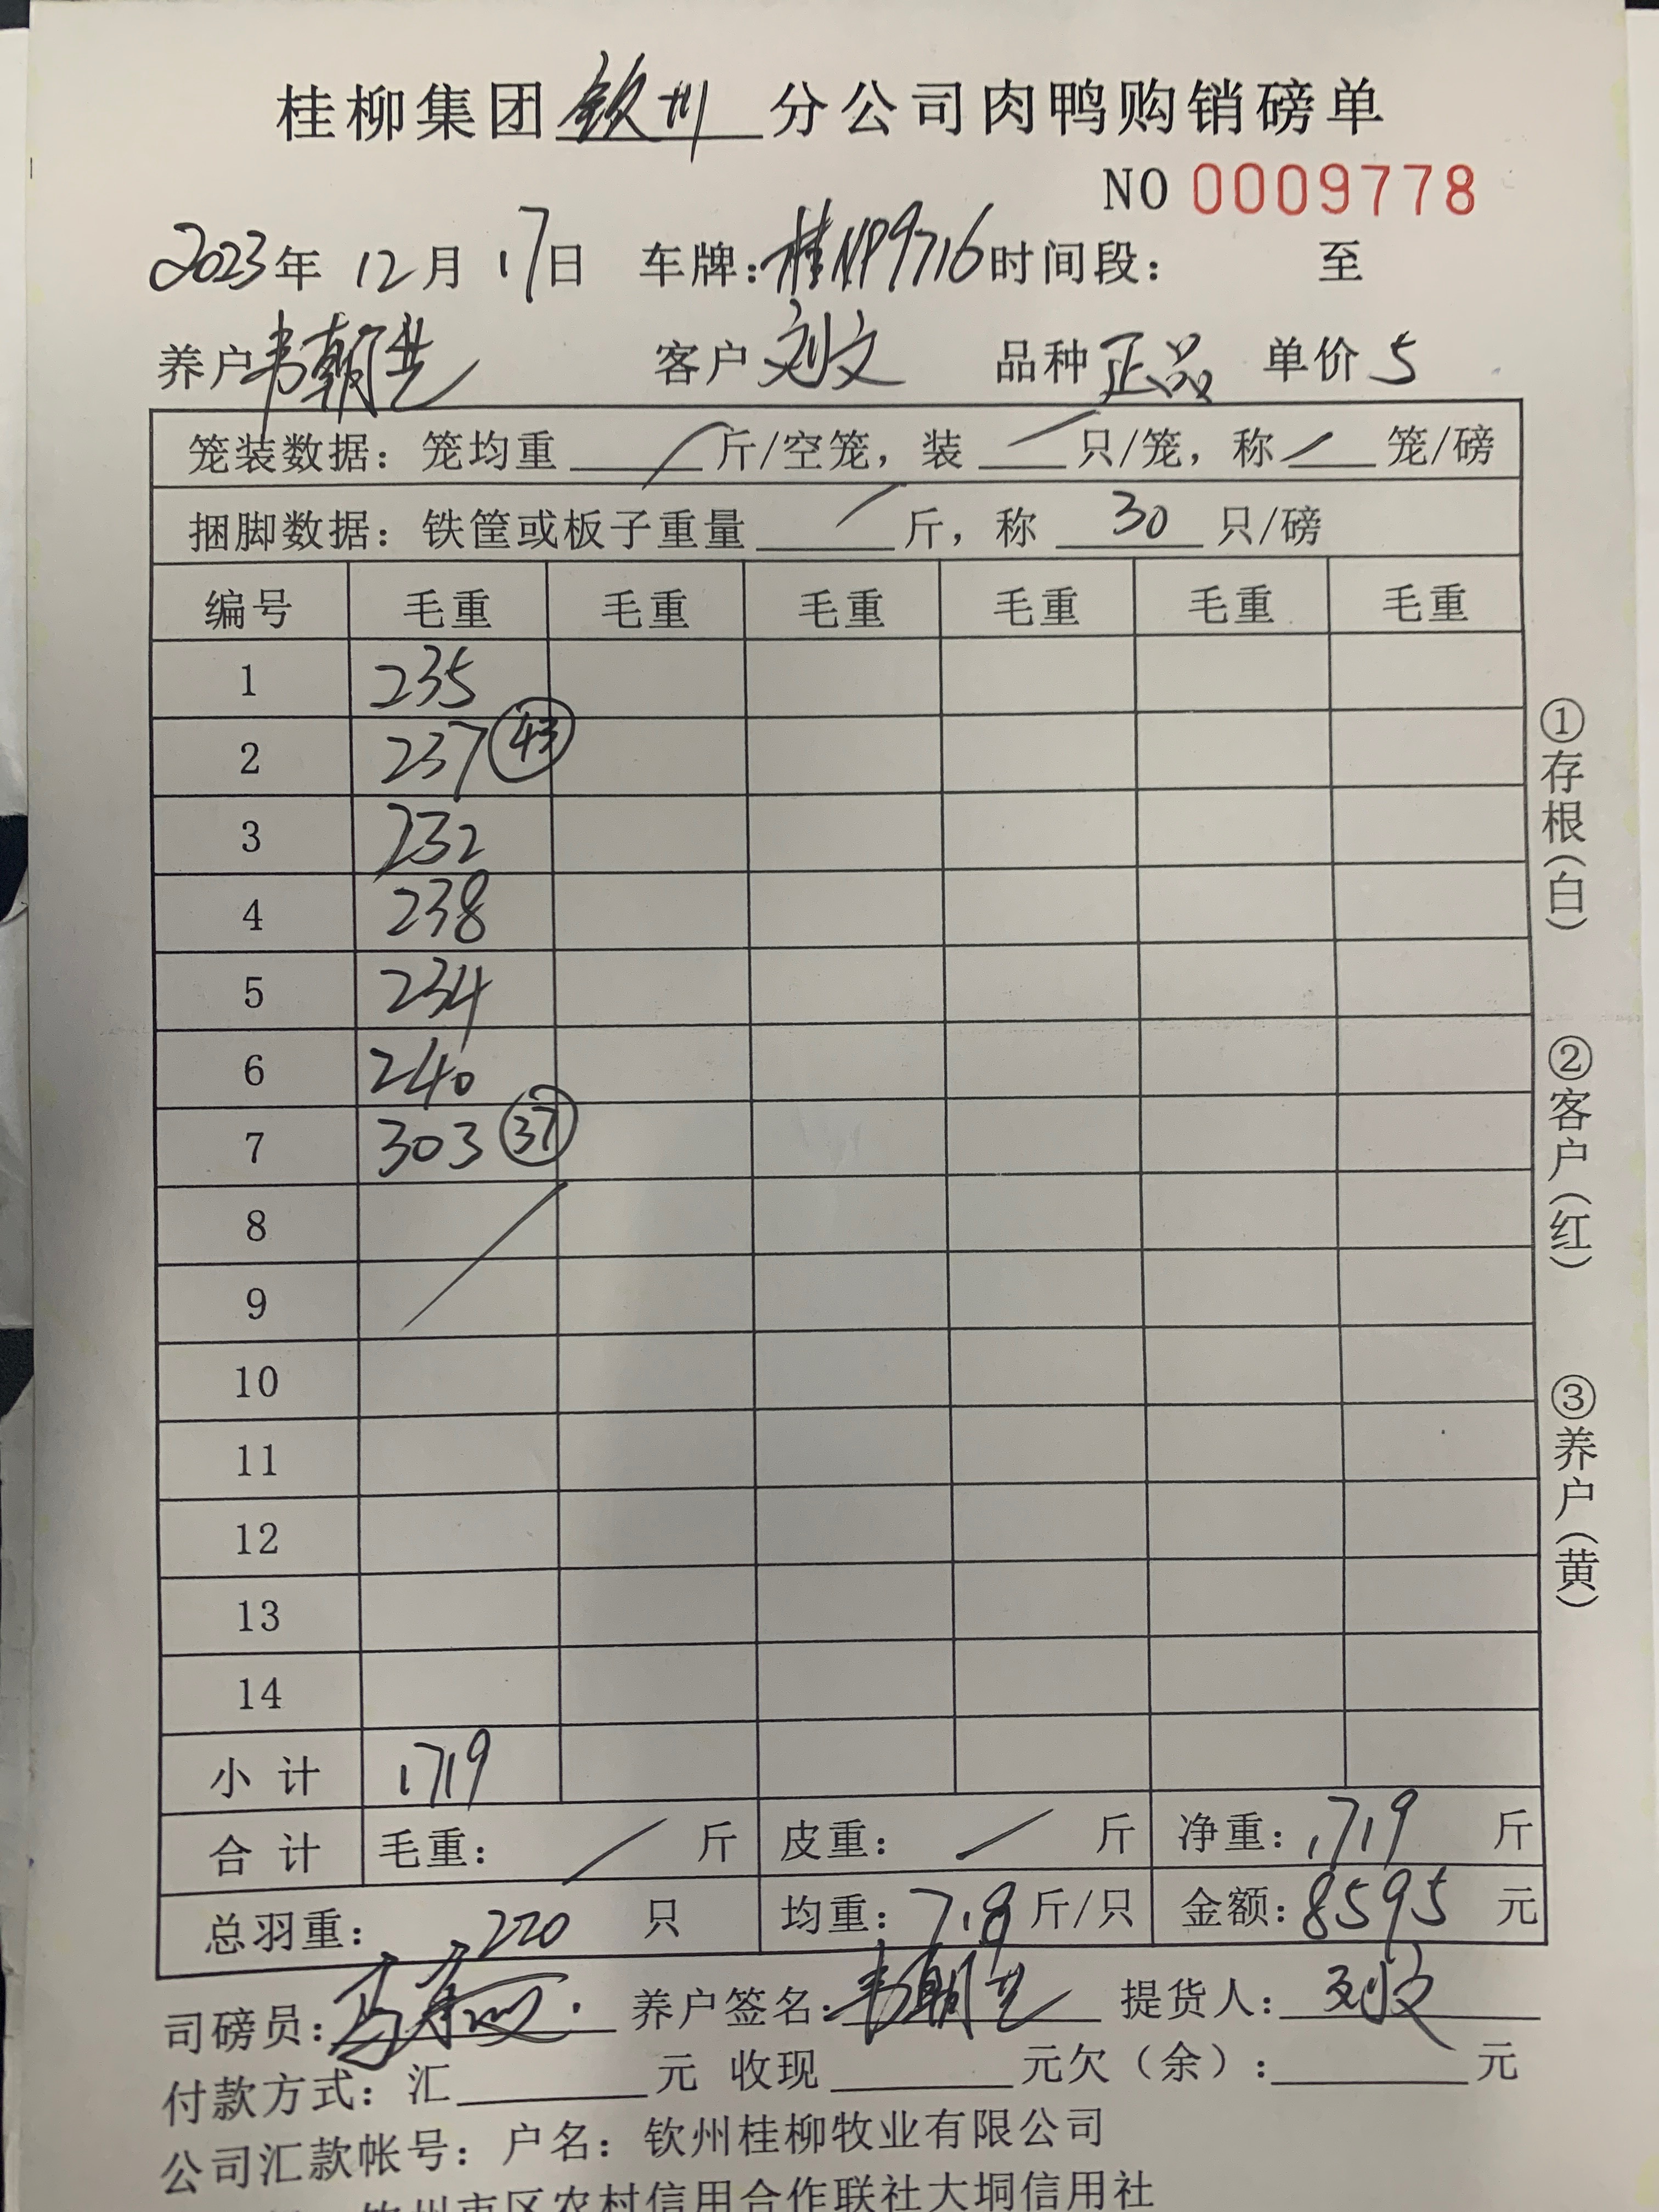 桂柳集团钦州分公司肉鸭购销磅单
NO 0009778
2023年 12月 17日 车牌：桂NP9716 时间段： 至
养户 韦朝 客户 刘文 品种 正品 单价 5
笼装数据：笼均重 / 斤/空笼，装 / 只/笼，称 / 笼/磅
捆脚数据：铁筐或板子重量 / 斤，称 30 只/磅
编号 毛重 毛重 毛重 毛重 毛重 毛重
1 235
2 237 43
3 232
4 238
5 234
6 240
7 303 37
8 /
9
10
11
12
13
14
小计 1719
合计 毛重： / 斤 皮重： / 斤 净重：1719 斤
总羽重： 220 只 均重：7.8 斤/只 金额：8595 元
司磅员： 养户签名：韦朝 提货人：刘文
付款方式：汇 元 收现 元欠（余）： 元
公司汇款帐号：户名：钦州桂柳牧业有限公司
钦州市区农村信用合作联社大垌信用社
①存根（白）
②客户（红）
③养户（黄）